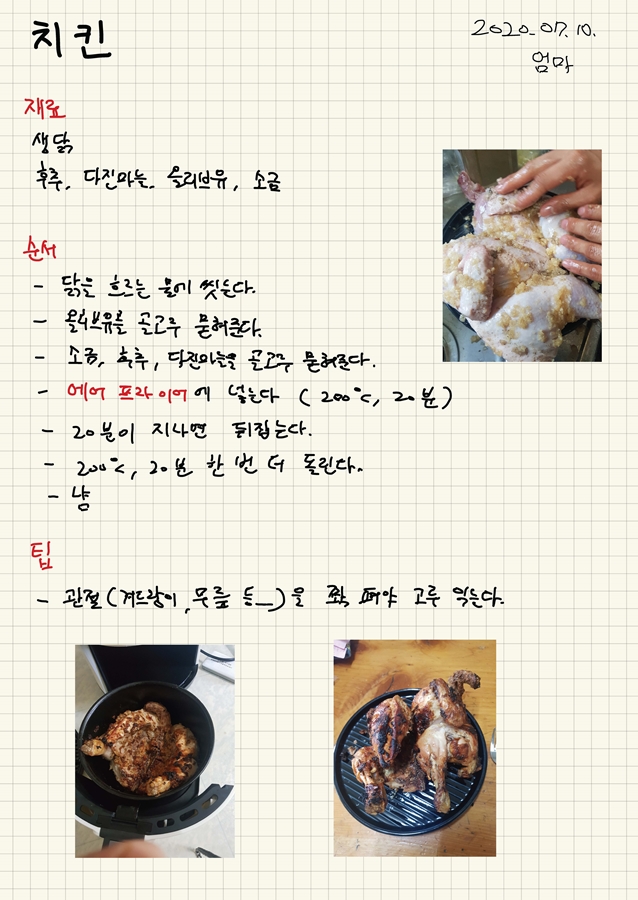 치킨
2020.07.10.
엄마
재료
생닭
후추, 다진마늘, 올리브유, 소금
순서
- 닭을 흐르는 물에 씻는다.
- 올리브유를 골고루 묻혀준다.
- 소금, 후추, 다진마늘을 골고루 묻혀준다.
- 에어 프라이어에 넣는다 (200°C, 20분)
- 20분이 지나면 뒤집는다.
- 200°C, 20분 한 번 더 돌린다.
- 냠
팁
- 관절(겨드랑이, 무릎 등...)을 쫙 펴야 고루 익는다.